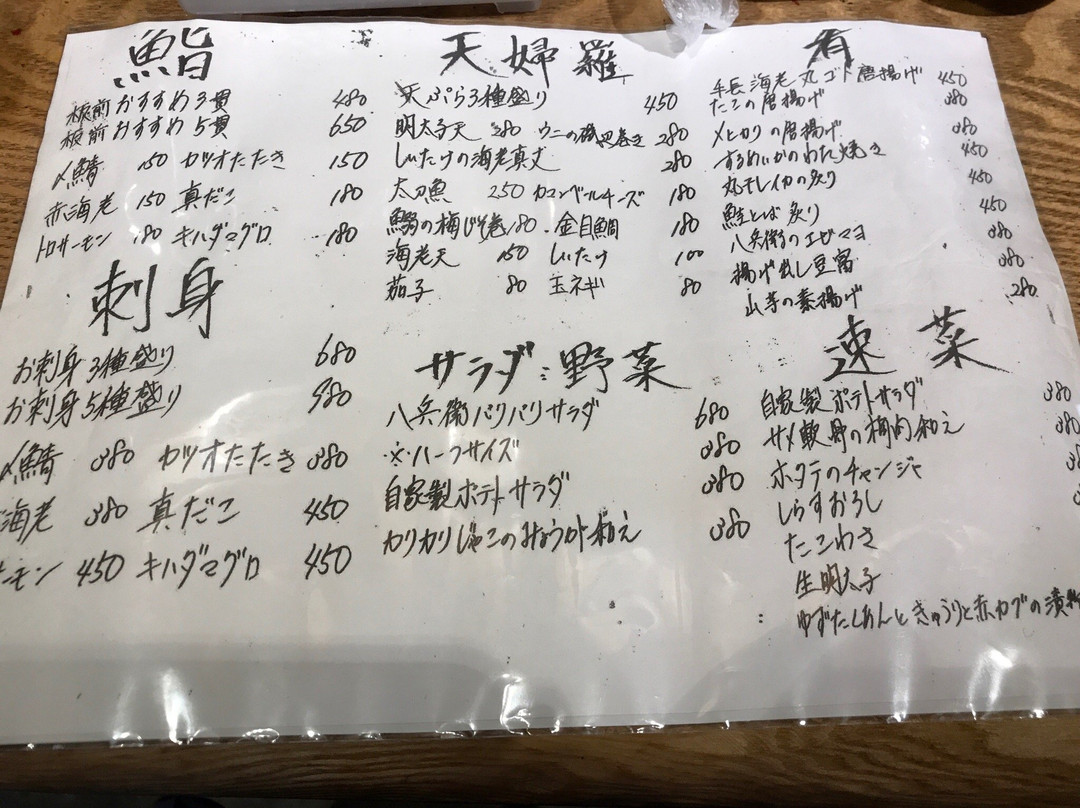 鮨
板前おすすめ3貫 480
板前おすすめ5貫 650
〆鯖 150 カツオたたき 150
赤海老 150 真だこ 180
トロサーモン 180 キハダマグロ 180
刺身
お刺身3種盛り 680
お刺身5種盛り 980
〆鯖 380 カツオたたき 380
海老 380 真だこ 450
ーモン 450 キハダマグロ 450
天婦羅
天ぷら3種盛り 450
明太子天 280 ウニの磯辺巻き 280
しいたけの海老真丈 280
太刀魚 250 カマンベールチーズ 180
鰯の梅じそ巻 180 金目鯛 180
海老天 150 しいたけ 100
茄子 80 玉ネギ 80
サラダ:野菜
八兵衛パリパリサラダ 680
※ハーフサイズ 380
自家製ポテトサラダ 380
カリカリじゃこのみょうが和え 380
肴
手長海老丸ゴト唐揚げ 450
たこの唐揚げ 380
メヒカリの唐揚げ 380
するめいかのわた焼き 450
丸干しイカの炙り 450
鮭とば炙り 450
八兵衛のエビマヨ 380
揚げ出し豆腐 380
山芋の素揚げ 280
速菜
自家製ポテトサラダ 380
サメ軟骨の梅肉和え 380
ホタテのチャンジャ
しらすおろし
たこわさ
生明太子
ゆずたくあんときゅうりと赤カブの漬物